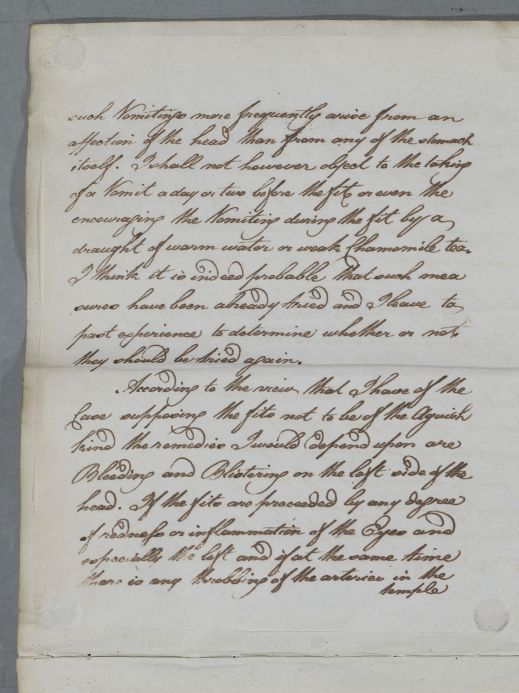 such Vomitings more frequently arise from an
affection of the head than from any of the stomach
itself. I shall not however object to the taking
of a Vomit a day or two before the fits or even the
encouraging the Vomiting during the fit by a
draught of warm water or weak Chamomile tea.
I think it is indeed probable that such mea
sures have been already tried and I leave to
past experience to determine whether or not
they should be tried again.
According to the view that I have of the
Case supposing the fits not to be of the Aguish
kind the remedies I would depend upon are
Bleeding and Blistering on the left side of the
head. If the fits are preceeded by any degree
of redness or inflammation of the Eyes and
especially the left and if at the same time
there is any throbbing of the arteries in the
temple